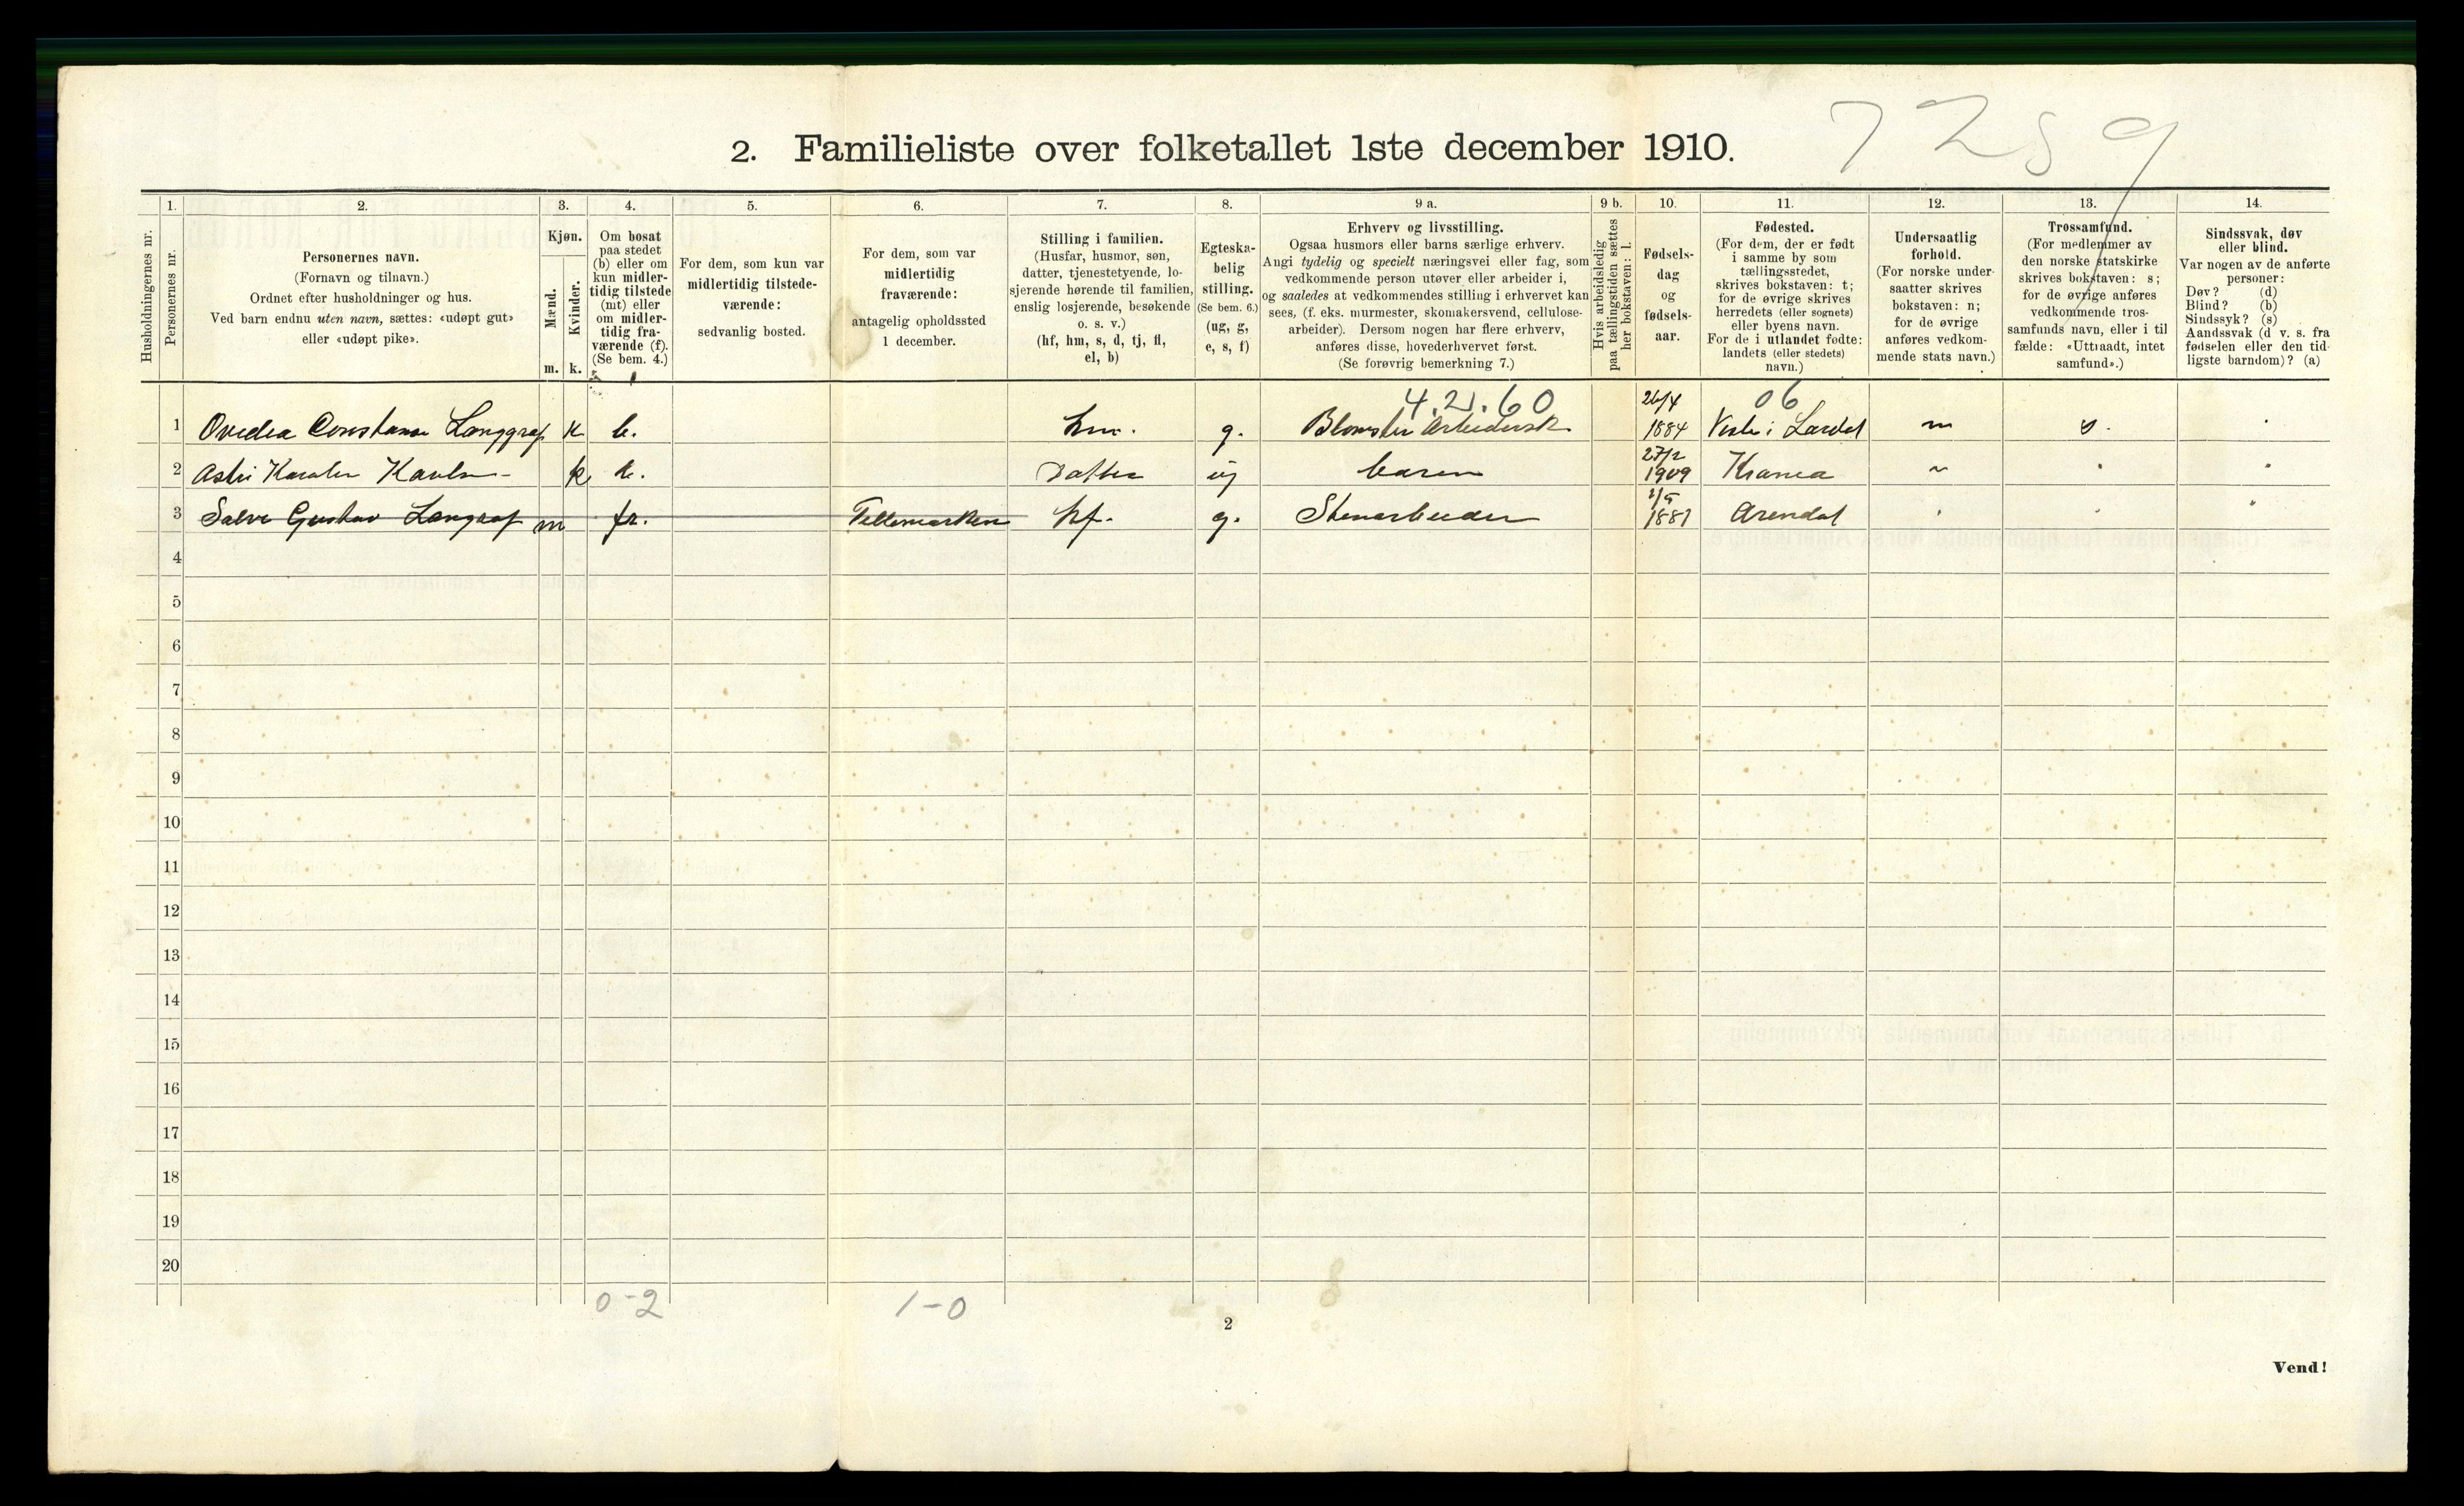 7259
2. Familieliste over folketallet 1ste december 1910.
1. 2. 3. 4. 5. 6. 7. 8. 9 a. 9 b. 10. 11. 12. 13. 14.
Husholdningernes nr.
Personernes nr.
Personernes navn.
(Fornavn og tilnavn.)
Ordnet efter husholdninger og hus.
Ved barn endnu uten navn, sættes: «udøpt gut»
eller «udøpt pike».
Kjøn.
Mænd.
Kvinder.
m. k.
Om bosat
paa stedet
(b) eller om
kun midler-
tidig tilstede
(mt) eller
om midler-
tidig fra-
værende (f).
(Se bem. 4.)
For dem, som kun var
midlertidig tilstede-
værende:
sedvanlig bosted.
For dem, som var
midlertidig
fraværende:
antagelig opholdssted
1 december.
Stilling i familien.
(Husfar, husmor, søn,
datter, tjenestetyende, lo-
sjerende hørende til familien,
enslig losjerende, besøkende
o. s. v.)
(hf, hm, s, d, tj, fl,
el, b)
Egteska-
belig
stilling.
(Se bem. 6.)
(ug, g,
e, s, f)
Erhverv og livsstilling.
Ogsaa husmors eller barns særlige erhverv.
Angi tydelig og specielt næringsvei eller fag, som
vedkommende person utøver eller arbeider i,
og saaledes at vedkommendes stilling i erhvervet kan
sees, (f. eks. murmester, skomakersvend, cellulose-
arbeider). Dersom nogen har flere erhverv,
anføres disse, hovederhvervet først.
(Se forøvrig bemerkning 7.)
Hvis arbeidsledig
paa tællingstiden sættes
her bokstaven: l.
Fødsels-
dag
og
fødsels-
aar.
Fødested.
(For dem, der er født
i samme by som
tællingsstedet,
skrives bokstaven: t;
for de øvrige skrives
herredets (eller sognets)
eller byens navn.
For de i utlandet fødte:
landets (eller stedets)
navn.)
Undersaatlig
forhold.
(For norske under-
saatter skrives
bokstaven: n;
for de øvrige
anføres vedkom-
mende stats navn.)
Trossamfund.
(For medlemmer av
den norske statskirke
skrives bokstaven: s;
for de øvrige anføres
vedkommende tros-
samfunds navn, eller i til-
fælde: «Uttraadt, intet
samfund».)
Sindssvak, døv
eller blind.
Var nogen av de anførte
personer:
Døv? (d)
Blind? (b)
Sindssyk? (s)
Aandssvak (d v. s. fra
fødselen eller den tid-
ligste barndom)? (a)
4.21.60 26/4 06
1 Ovedia Constanse Langgraf k b. hm. g. Blomster Arbeidersk 1884 Vestre i Lardal n s.
27/2
2 Astri Karoline Karlsen k b. Datter ug barn 1909 Krania
3 Salve Gustav Langraf m fr. Tellemarken hf. g. Stenarbeider 1881 Arendal
4
5
6
7
8
9
10
11
12
13
14
15
16
17
18
19
20
0-2 1-0
2
Vend!